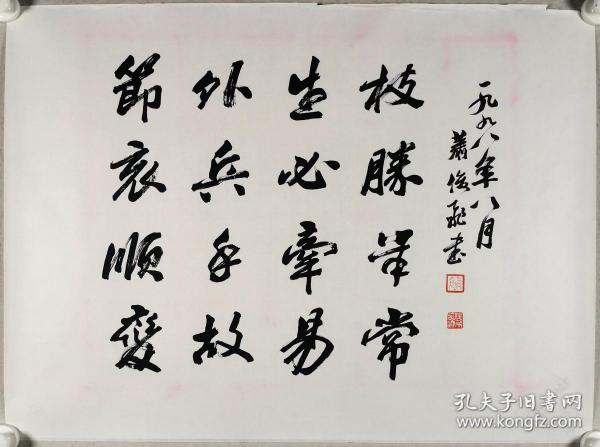 節外生枝
哀兵必勝
順手牽羊
變故易常
一九九八年八月
蕭俊飛书
孔夫子旧书网
kongfz.com